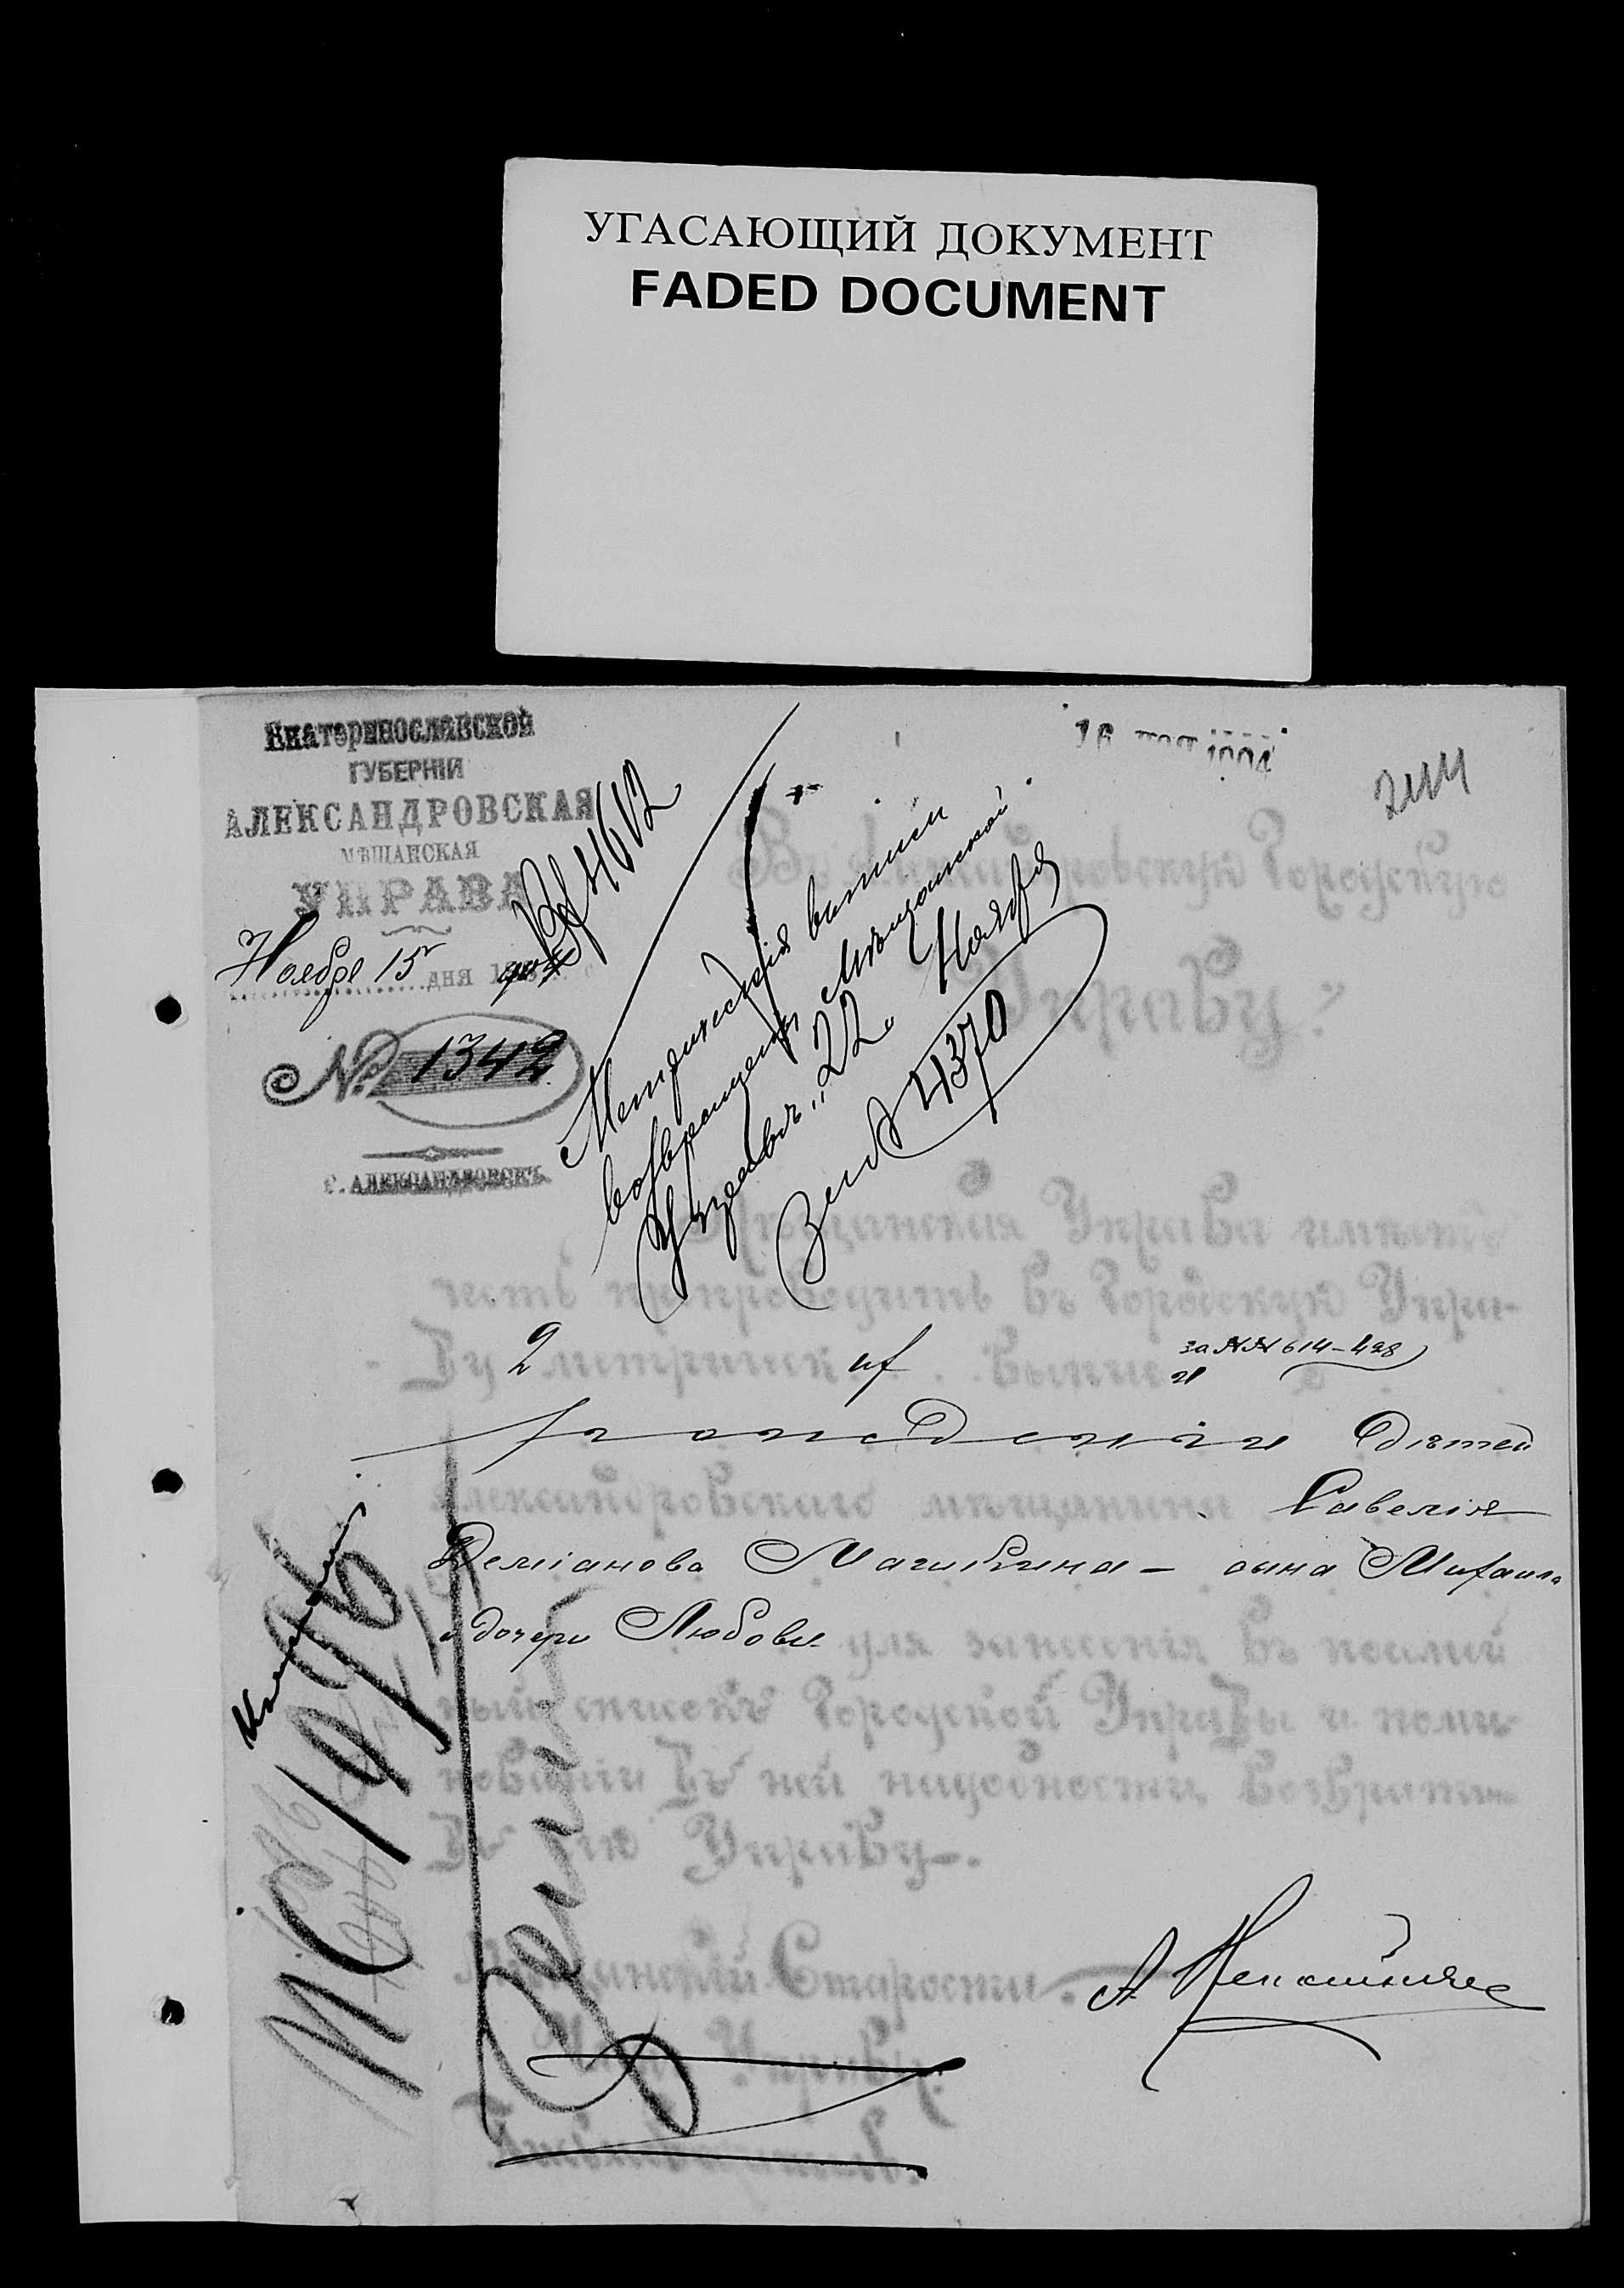 УГАСАЮЩИЙ ДОКУМЕНТ
FADED DOCUMENT
Екатеринославской
ГУБЕРНІИ
АЛЕКСАНДРОВСКАЯ
МѢЩАНСКАЯ
УПРАВА
Ноября 15 дня
№ 1342
г. АЛЕКСАНДРОВСКЪ.
4612
Метрическія выписи
возвращены Мѣщанской
Управѣ „22„ Ноября
за № 4370
Въ Александровскую Городскую
Управу.
Мѣщанская Управа имѣетъ
честь препроводить въ Городскую Упра-
ву 2 метрическихъ выписи за №№ 614-428
о рожденіи дѣтей
Александровскаго мѣщанина Савелія
Деміанова сына Михаила
и дочери Любови для занесенія въ посемей
ный списокъ Городской Управы и по ми-
нованіи въ ней надобности возврати-
ть въ сію Управу.
Мѣщанскій Староста
Членъ Управы
Письмоводитель
МС 1996